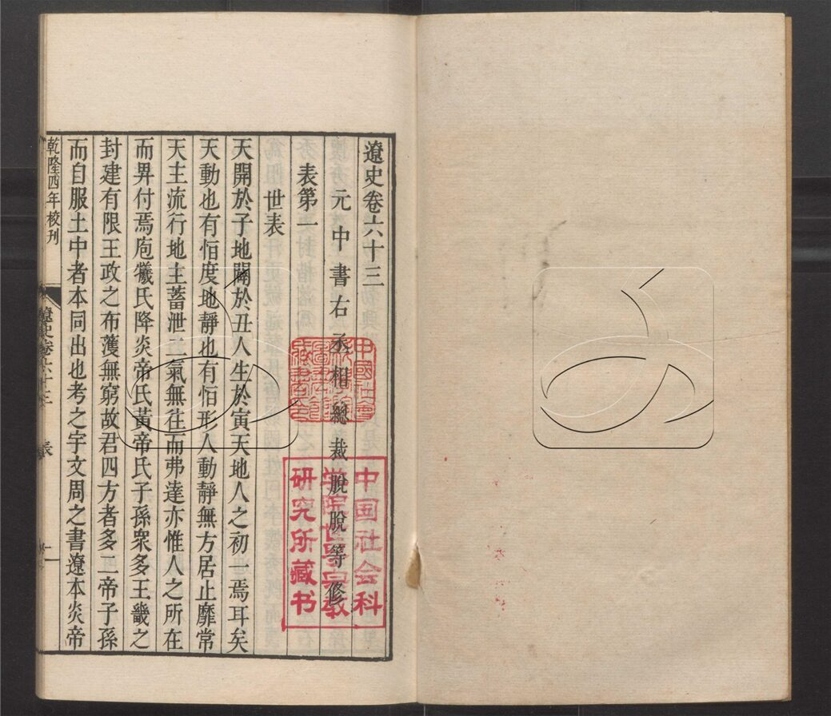 遼史卷六十三
元中書右丞相總裁脫脫等修
表第一
世表
天開於子地闢於丑人生於寅天地人之初一焉耳矣
天動也有恒度地靜也有恒形人動靜無方居止靡常
天主流行地主蓄泄二氣無往而弗達亦惟人之所在
而畀付焉庖犧氏降炎帝氏黃帝氏子孫衆多王畿之
封建有限王政之布濩無窮故君四方者多二帝子孫
而自服土中者本同出也考之宇文周之書遼本炎帝
乾隆四年校刊
遼史卷六十三
表
一
中国社会科
学院世界宗教
研究所藏书